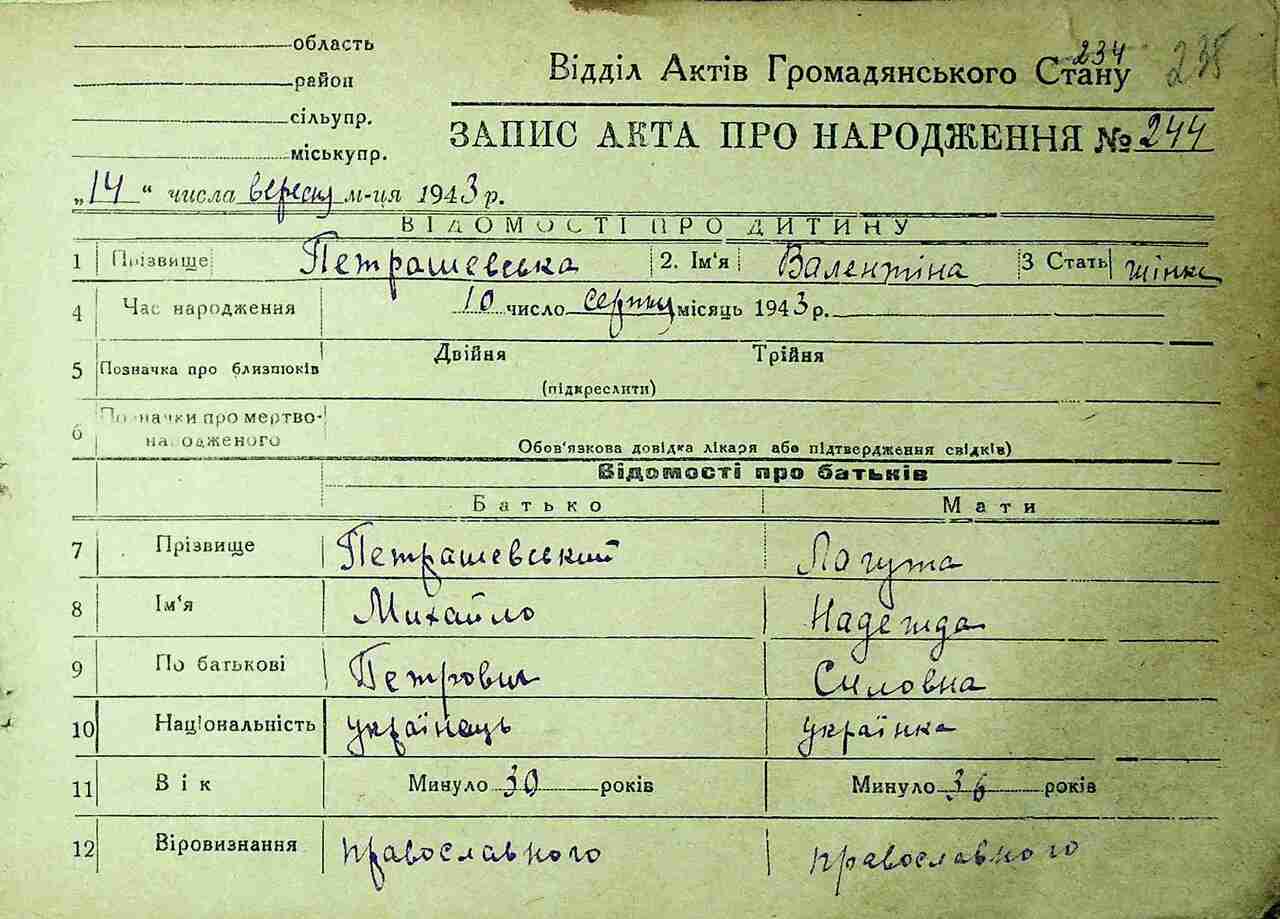 область
район
сільупр.
міськупр.
234 235
Відділ Актів Громадянського Стану
ЗАПИС АКТА ПРО НАРОДЖЕННЯ № 244
„14“ числа вересня м-ця 1943 р.
ВІДОМОСТІ ПРО ДИТИНУ
1 Прізвище Петрашевська 2. Ім'я Валентіна 3 Стать жінка
4 Час народження 10 число серпня місяць 1943 р.
5 Позначка про близнюків Двійня Трійня
(підкреслити)
6 Позначки про мертво-
народженого Обов'язкова довідка лікаря або підтвердження свідків)
Відомості про батьків
Батько Мати
7 Прізвище Петрашевський Лагута
8 Ім'я Михайло Надежда
9 По батькові Петрович Силовна
10 Національність українець українка
11 Вік Минуло 30 років Минуло 36 років
12 Віровизнання православного православного